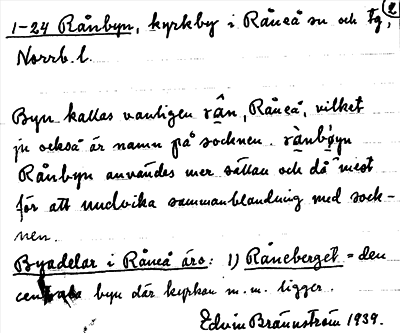 1-24 Rånbyn, kyrkby i Råneå sn och tg, 2
Norrb. l.
Byn kallas vanligen rån, Råneå, vilket
ju också är namn på socknen. rànbýyn
Rånbyn användes mer sällan och då mest
för att undvika sammanblandning med sock-
nen.
Byadelar i Råneå äro: 1) Råneberget = den
centrala byn där kyrkan m.m. ligger.
Edvin Brännström 1939.